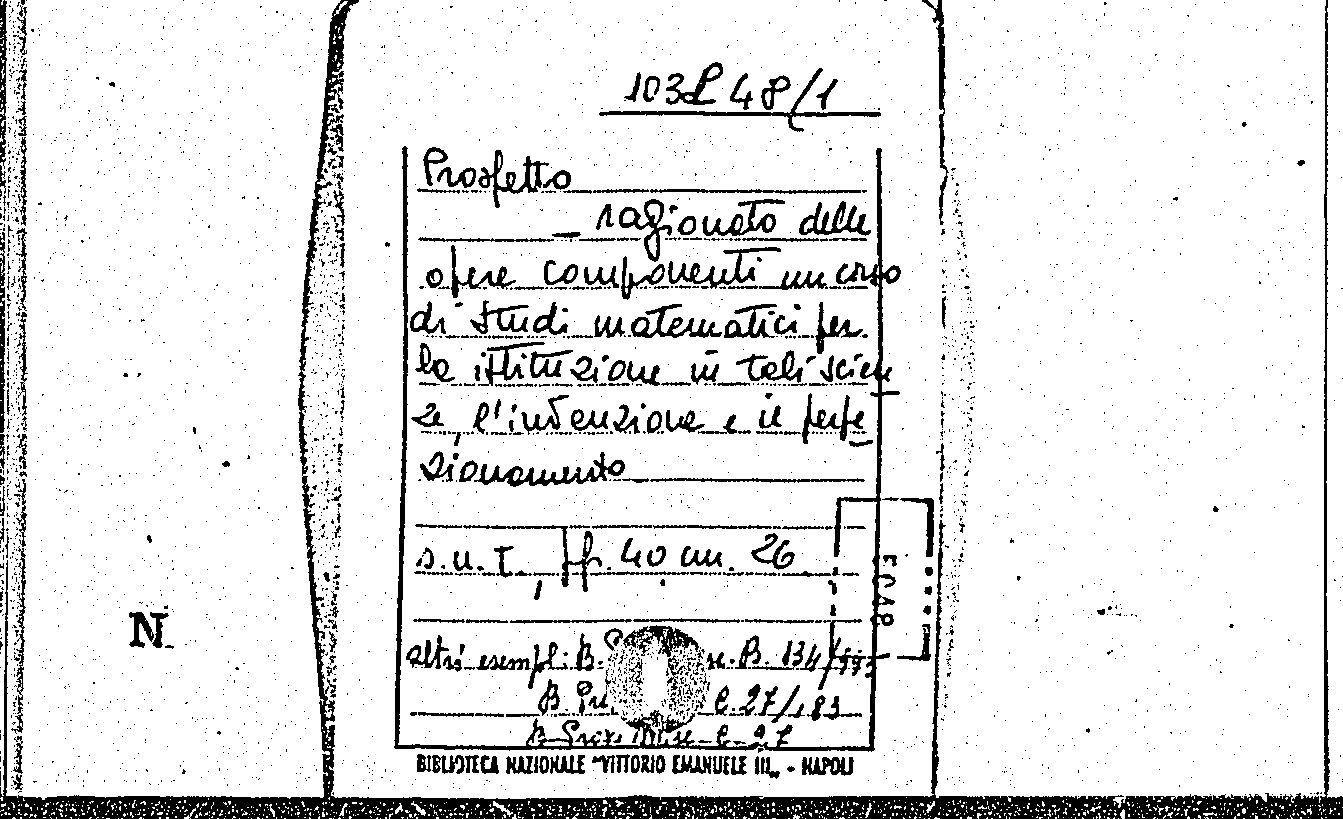 103 L 48/1
Prospetto
— ragionato delle
opere componenti un corso
di studi matematici per
la istituzione in tali scien
ze, l'invenzione e il perfe
zionamento
s.n.t., pp. 40 cm. 26
altri esempl: B. B. 134/
B. C. 27/183
B. Misc. C. 27
BIBLIOTECA NAZIONALE "VITTORIO EMANUELE III„ - NAPOLI
N